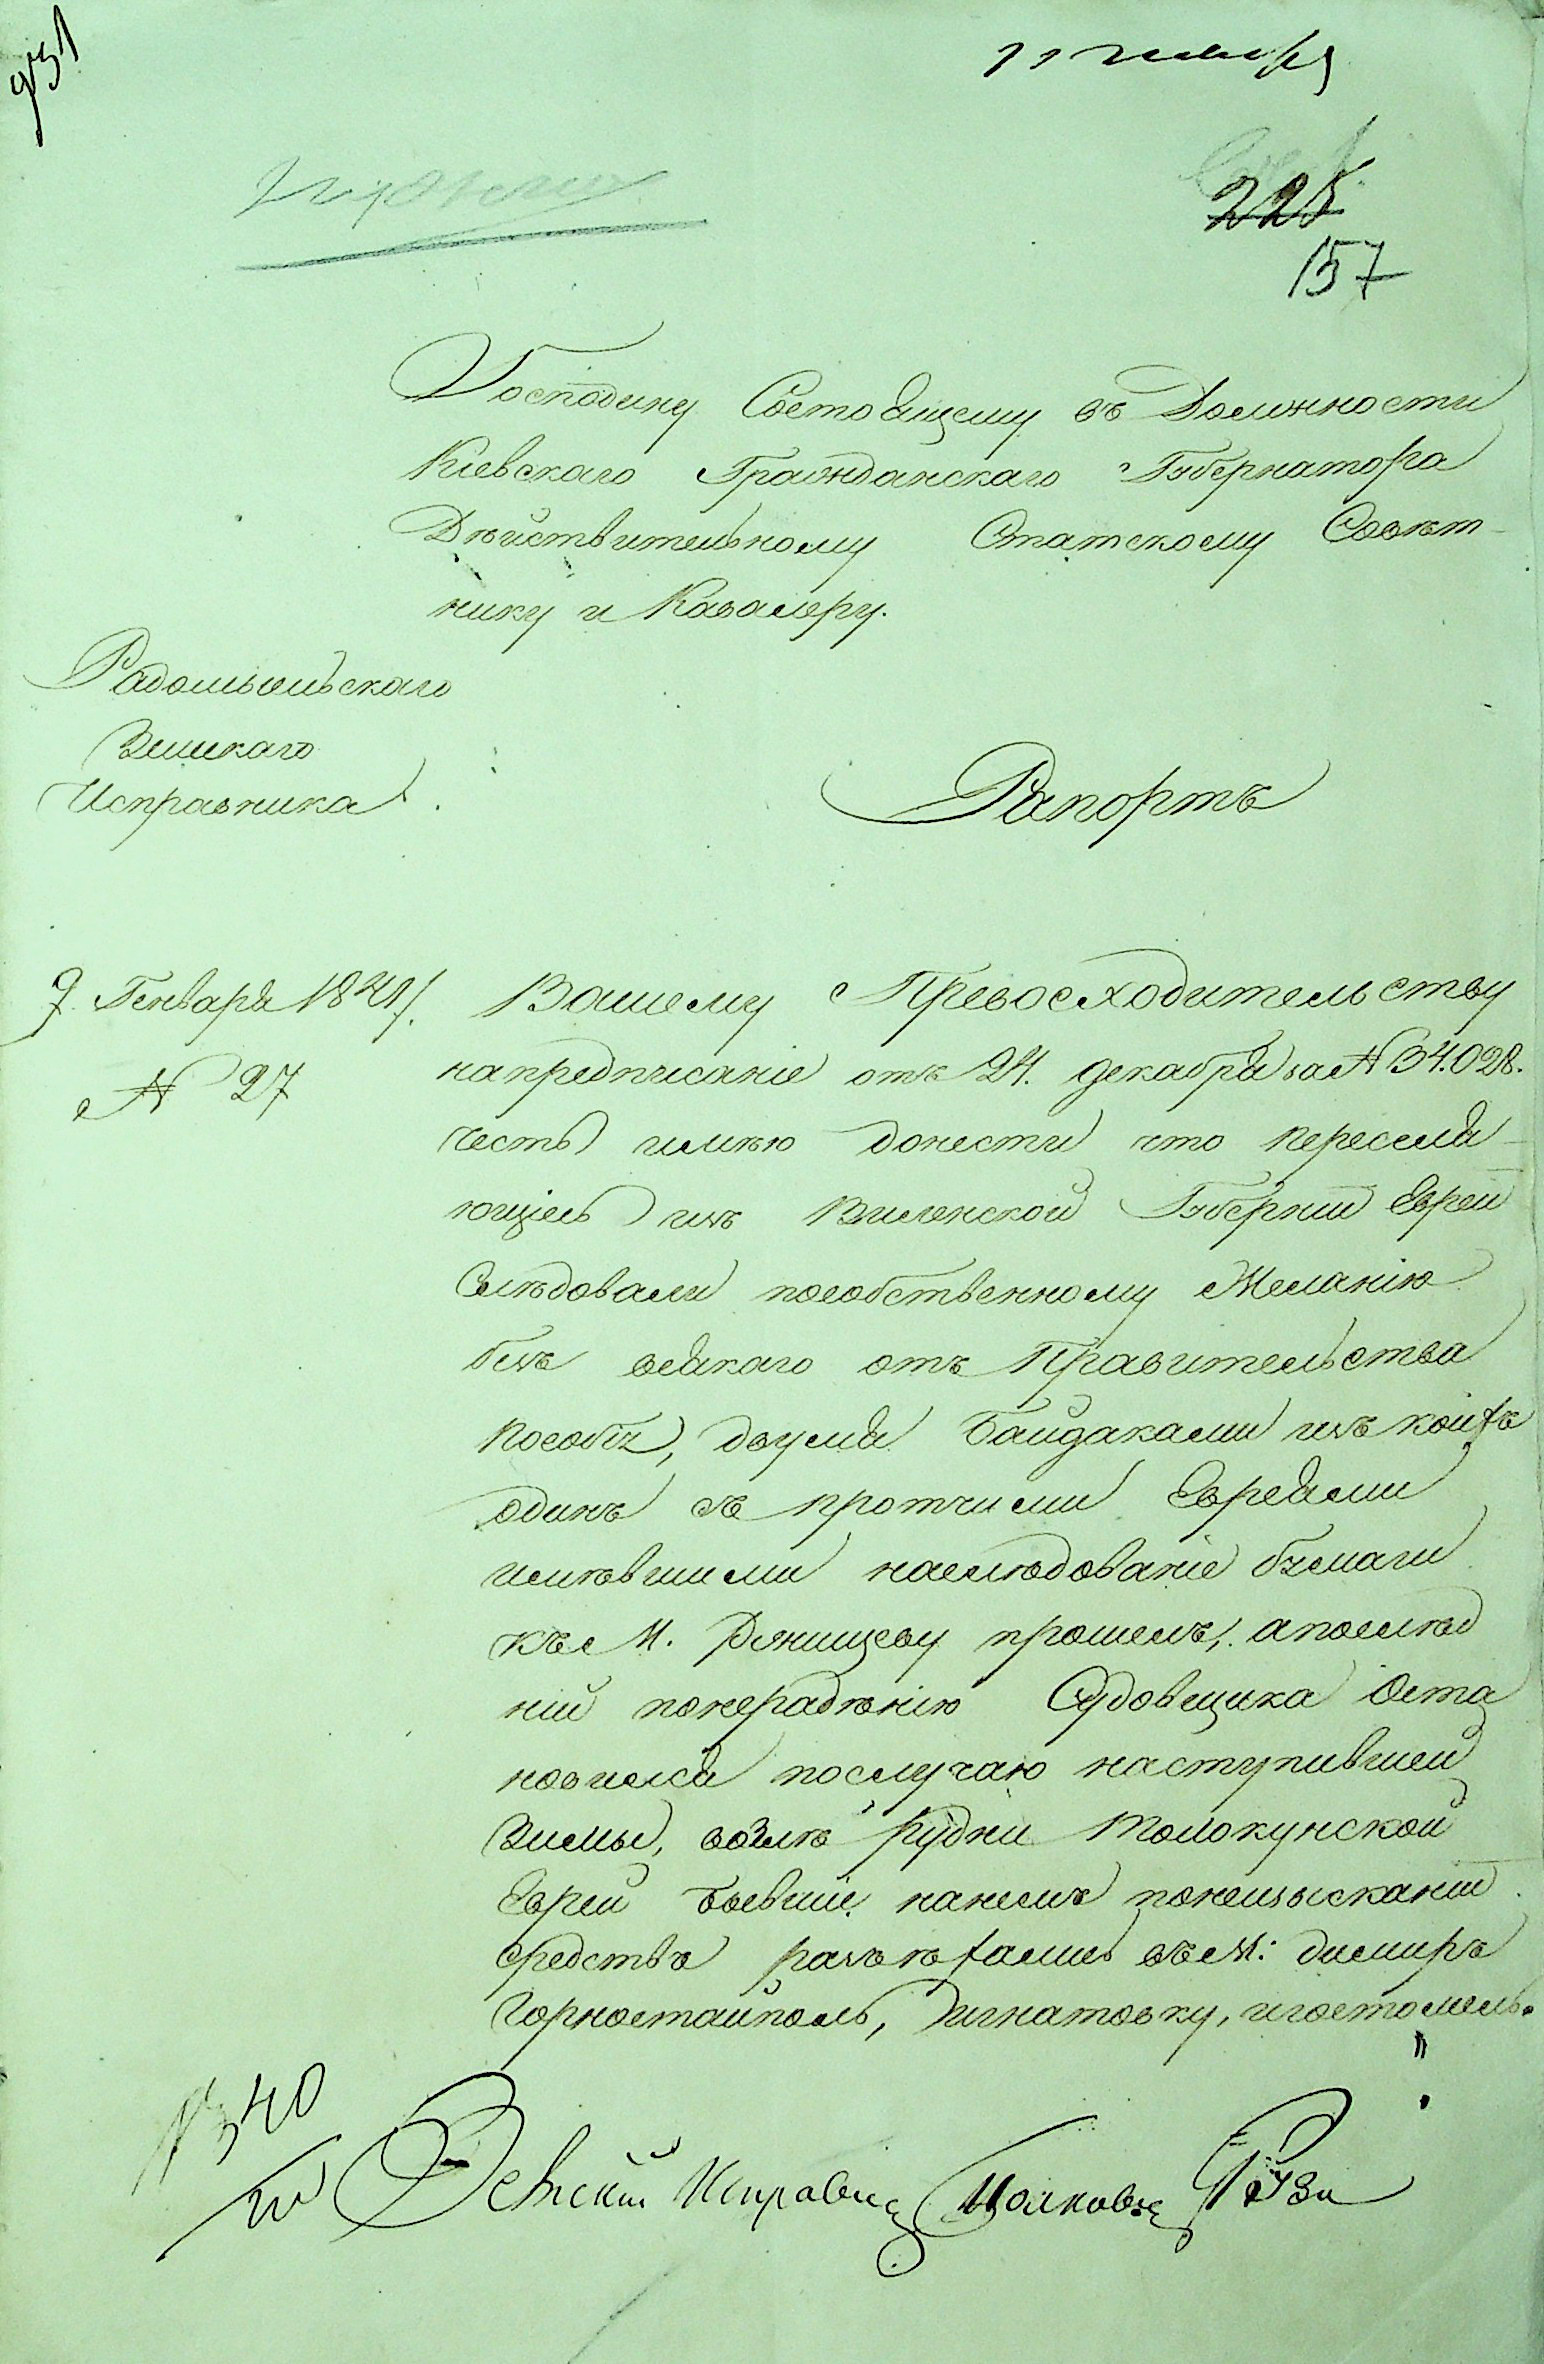 931
11 генваря
225
157
Господину Состоящему въ Должности
Кіевскаго Гражданскаго Губернатора
Дѣйствительному Статскому Совѣт-
нику и Кавалеру.
Радомысльскаго
Земскаго
Исправника
Рапортъ
9 Генваря 1841 г.
№ 27
Вашему Превосходительству
напредписаніе отъ 24. декабря за № 34.028.
честь имѣю донести что переселя-
ющіесь изъ Виленской Губерніи Евреи
Слѣдовали пособственному Желанію
безъ всякаго отъ Правительства
пособія, двумя Байдаками изъ коихъ
одинъ съ протчими Евреями
имѣвшими наслѣдованіе бумаги
къ М. Ржищеву прошелъ, апослѣд
ній понерадѣнію Судовщика Оста
новился послучаю наступившей
Зимы, возлѣ Рудни Толокунской
Евреи бывшіе нанемъ понеизысканію
средствъ разъѣхались въ М: димиръ
Горностайполь, Игнатовку, игостомель.
№ 340
Земскій Исправникъ